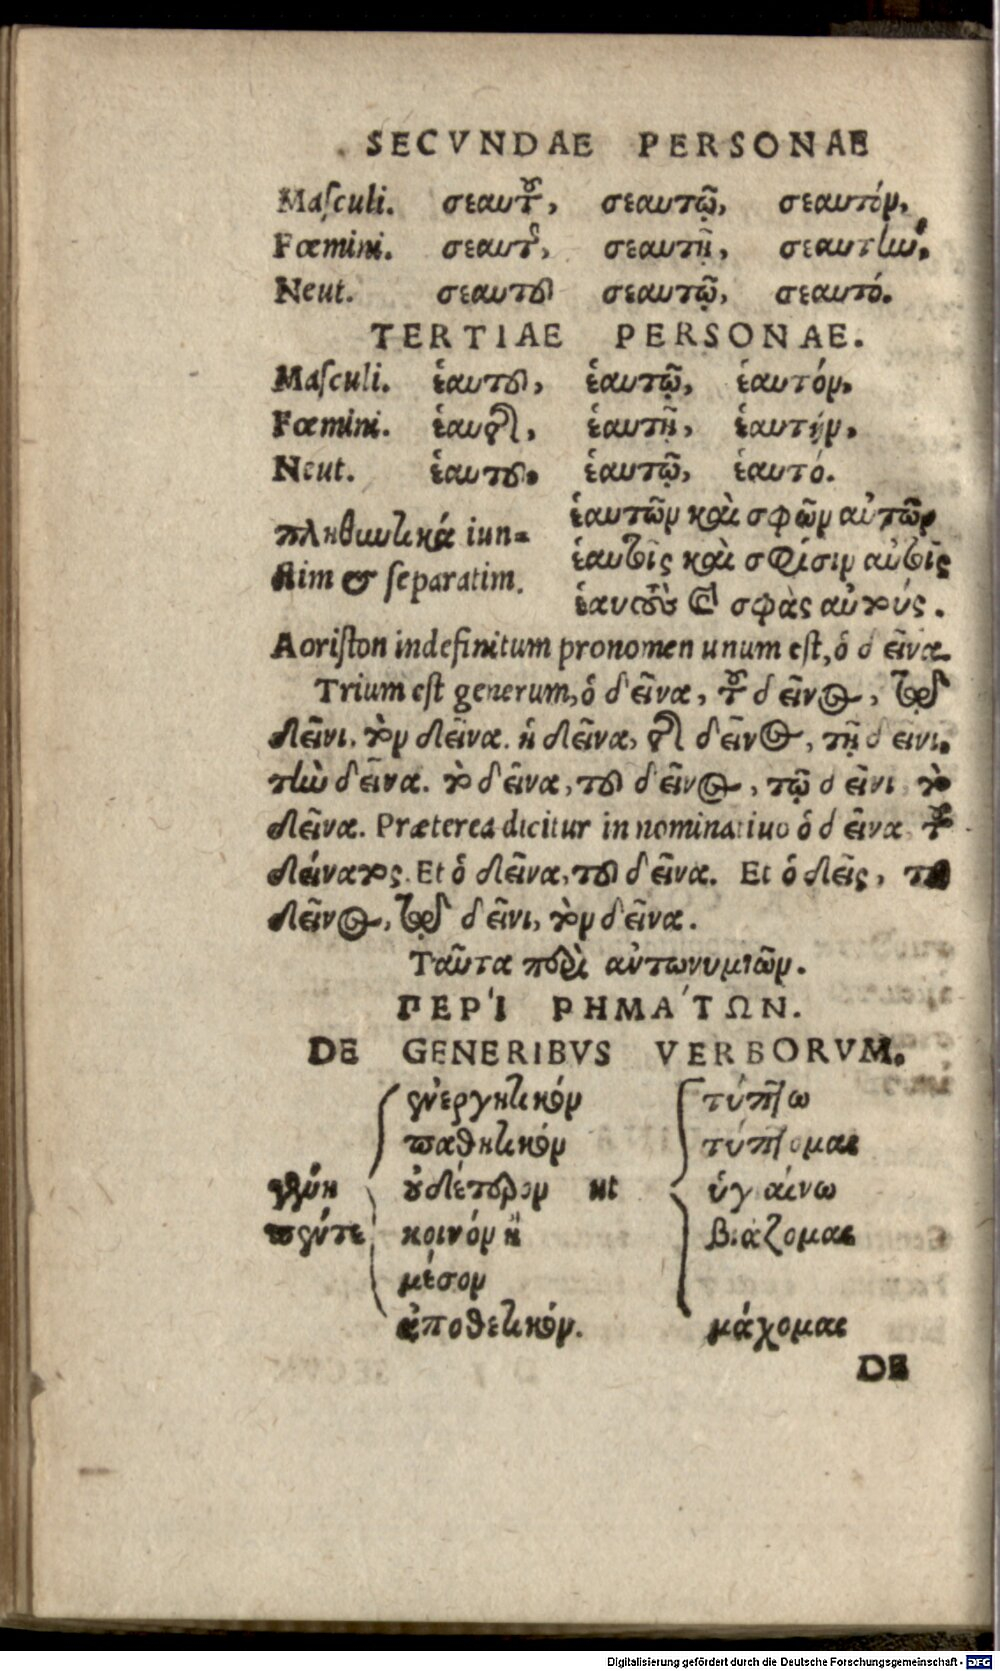 SECVNDAE PERSONAE
Maſculi. σεαυτοῦ, σεαυτῷ, σεαυτόν,
Fœmini. σεαυτῆς, σεαυτῇ, σεαυτὴν,
Neut. σεαυτοῦ σεαυτῷ, σεαυτό.
TERTIAE PERSONAE.
Maſculi. ἑαυτοῦ, ἑαυτῷ, ἑαυτόν,
Fœmini. ἑαυτῆς, ἑαυτῇ, ἑαυτήν,
Neut. ἑαυτοῦ, ἑαυτῷ, ἑαυτό.
ἑαυτῶν καὶ σφῶν αὐτῶν
πληθυντικά iun-
ἑαυτοῖς καὶ σφίσιν αὐτοῖς
ctim & ſeparatim.
ἑαυτοὺς καὶ σφὰς αὐτούς.
Aoriſton indefinitum pronomen unum eſt, ὁ δεῖνα.
Trium eſt generum, ὁ δεῖνα, τοῦ δεῖνος, τῷ
δεῖνι, τὸν δεῖνα. ἡ δεῖνα, τῆς δεῖνος, τῇ δεῖνι,
τὴν δεῖνα. τὸ δεῖνα, τοῦ δεῖνος, τῷ δεῖνι τὸ
δεῖνα. Præterea dicitur in nominatiuo ὁ δεῖνα τοῦ
δείνατος. Et ὁ δεῖνα, τοῦ δεῖνα. Et ὁ δεῖς, τοῦ
δεῖνος, τῷ δεῖνι, τὸν δεῖνα.
Ταῦτα περὶ αὐτωνυμιῶν.
ΠΕΡΊ ΡΗΜΑΤΩΝ.
DE GENERIBVS VERBORVM.
ἐνεργητικόν τύπτω
παθητικόν τύπτομαι
γένη οὐδέτερον ut ὑγιαίνω
πέντε κοινόν ἢ βιάζομαι
μέσον
ἀποθετικόν. μάχομαι
DE
Digitalisierung gefördert durch die Deutsche Forschungsgemeinschaft - DFG